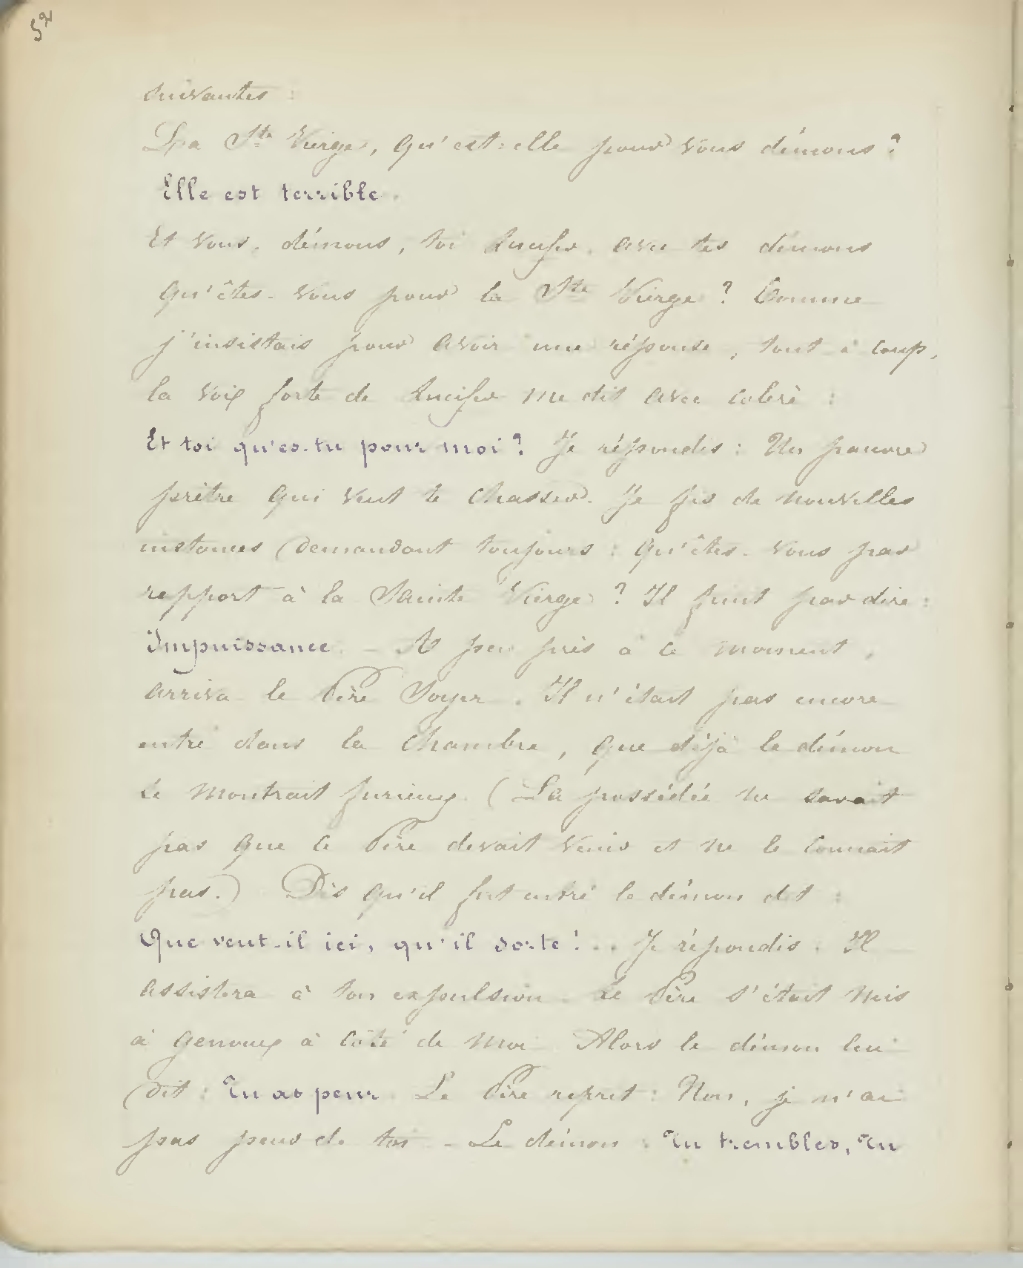 52
suivantes :
La Ste Vierge, qu'est-elle pour vous démons ?
Elle est terrible.
Et vous, démons, toi Lucifer, avec tes démons
qu'êtes-vous pour la Ste Vierge ? Comme
j'insistais pour avoir une réponse, tout à coup,
la voix forte de Lucifer me dit avec colère :
Et toi qu'es-tu pour moi ? Je répondis : Un pauvre
prêtre qui veut te chasser. Je fis de nouvelles
instances demandant toujours : qu'êtes-vous par
rapport à la Sainte Vierge ? Il finit par dire :
Impuissance. - A peu près à ce moment,
arriva le Père Soyer. Il n'était pas encore
entré dans la chambre, que déjà le démon
se montrait furieux. (La possédée ne savait
pas que ce Père devait venir et ne le connait
pas.) Dès qu'il fut entré le démon dit :
Que veut-il ici, qu'il sorte ! .. Je répondis. Il
assistera à ton expulsion. Le Père s'était mis
à genoux à côté de moi. Alors le démon lui
dit : Tu as peur. Le Père reprit : Non, je n'ai
pas peur de toi. - Le démon : Tu trembles, Tu